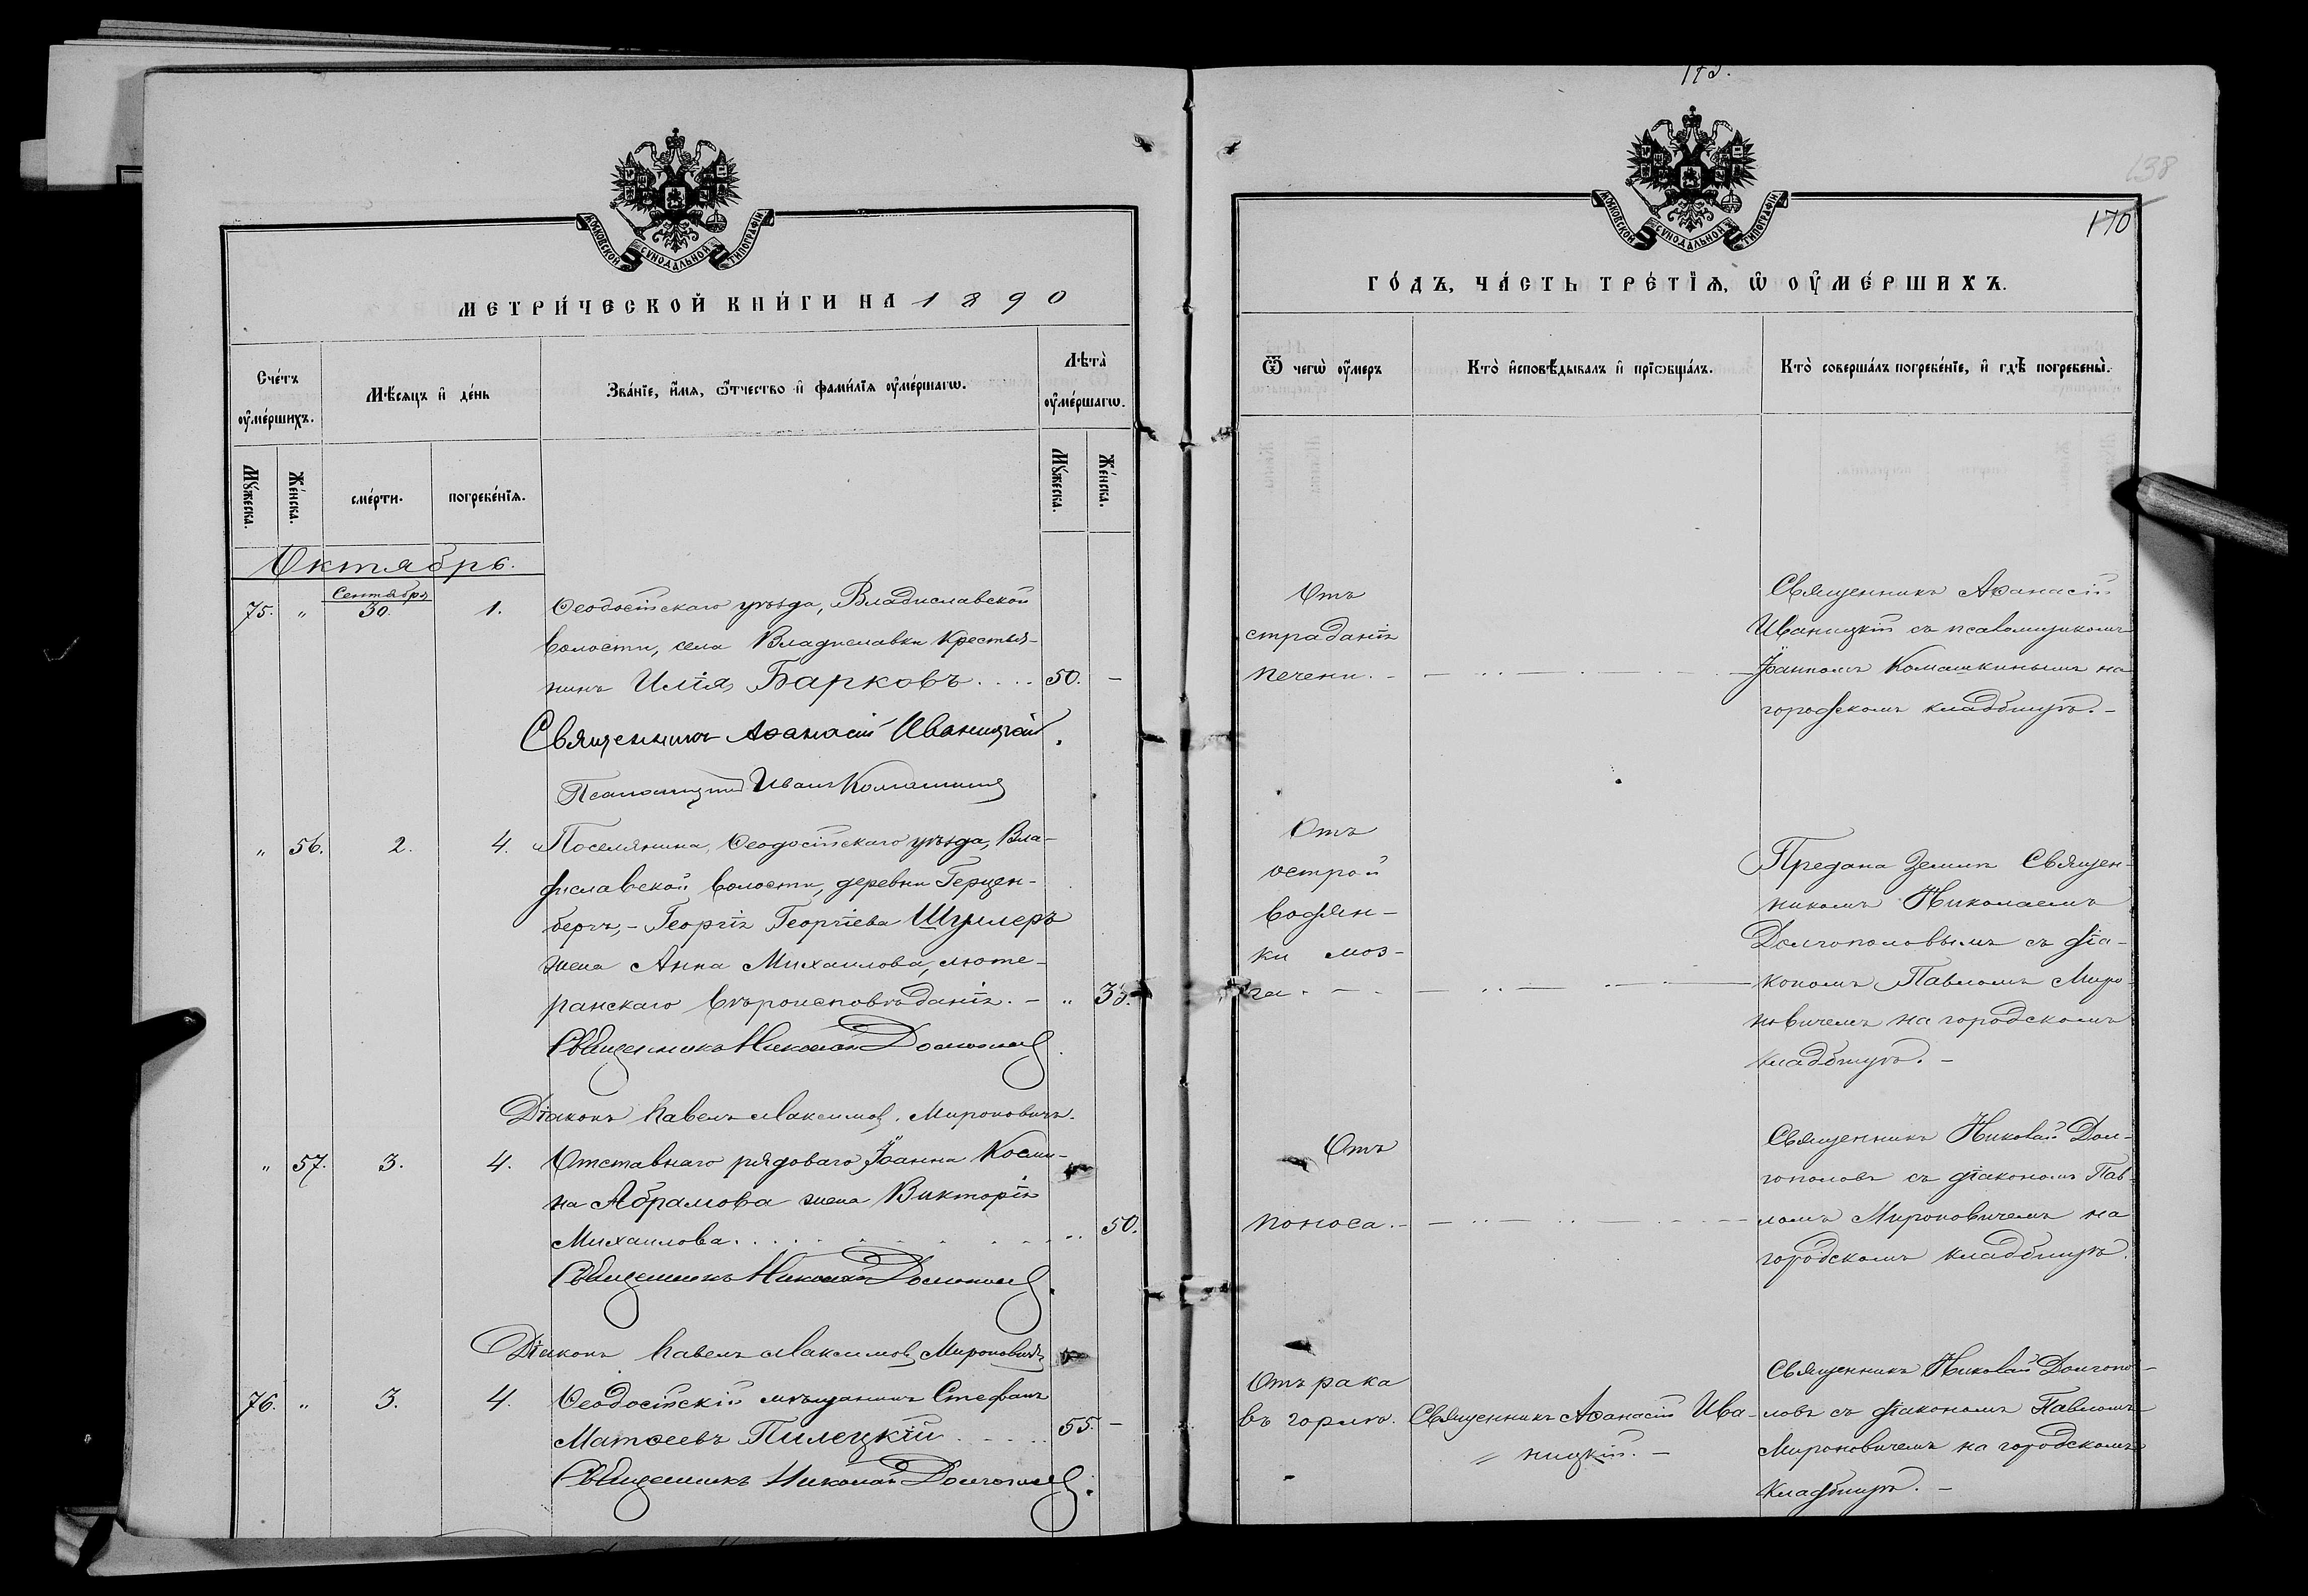 МОСКОВСКОЙ СѴНОДАЛЬНОЙ ТИПОГРАФІИ
МЕТРИ́ЧЕСКОЙ КНИ́ГИ НА 1890
Сче́тъ ᲂу҆ме́ршихъ.
Мѣ́сяцъ и҆ де́нь
Зва́нїе, и҆́мѧ, ѻ҆́тчество и҆ фами́лїѧ ᲂу҆ме́ршагѡ.
Лѣта̀ ᲂу҆ме́ршагѡ.
Мꙋ́жеска.
Же́нска.
сме́рти.
погребе́нїѧ.
Мꙋ́жеска.
Же́нска.
Октябрь.
75. " Сентября 30. 1. Ѳеодосійскаго уѣзда, Владиславской
волости, села Владиславки крестья-
нинъ Илія Барковъ.... 50. -
Священникъ Аѳанасій Иваницкій.
Псаломщикъ Иванъ Комашкинъ
" 56. 2. 4. Поселянина, Ѳеодосійскаго уѣзда, Вла-
диславской волости, деревни Герцен-
бергъ, - Георгія Георгіева Шуллеръ
жена Анна Михаилова, люте-
ранскаго вѣроисповѣданія. - " 33.
Священникъ Николай Долгополов
Діаконъ Павелъ Максимов. Мироновичъ.
" 57. 3. 4. Отставнаго рядоваго Іоанна Косми-
на Абрамова жена Викторія
Михаилова. . . . 50.
Священникъ Николай Долгополов.
Діаконъ Павелъ Максимов Мироновичъ
76. " 3. 4. Ѳеодосійскій мѣщанинъ Стефанъ
Матѳеевъ Пилецкій . . . 55. -
Священникъ Николай Долгополов.
138
170
МОСКОВСКОЙ СѴНОДАЛЬНОЙ ТИПОГРАФІИ
ГО́ДЪ, ЧА́СТЬ ТРЕ́ТЇѦ, Ѡ҆ ОУ҆МЕ́РШИХЪ.
Ѿ чегѡ̀ ᲂу҆́меръ
Кто̀ и҆сповѣ́дывалъ и҆ прїѡбща́лъ.
Кто̀ соверша́лъ погребе́нїе, и҆ гдѣ̀ погребены̀.
Отъ
страданія
печени. -
Священникъ Аѳанасій
Иваницкій съ псаломщикомъ
Іоанномъ Комашкинымъ на
городскомъ кладбищѣ. -
Отъ
острой
водян-
ки моз-
га. -
Предана землѣ Священ-
никомъ Николаемъ
Долгополовымъ съ діа-
кономъ Павломъ Миро-
новичемъ на городскомъ
кладбищѣ. -
Отъ
поноса. -
Священникъ Николай Дол-
гополовъ съ діакономъ Пав-
ломъ Мироновичемъ на
городскомъ кладбищѣ.
Отъ рака
въ горлѣ.
Священникъ Аѳанасій Ива-
ницкій. -
Священникъ Николай Долгопо-
ловъ съ діакономъ Павломъ
Мироновичемъ на городскомъ
кладбищѣ. -